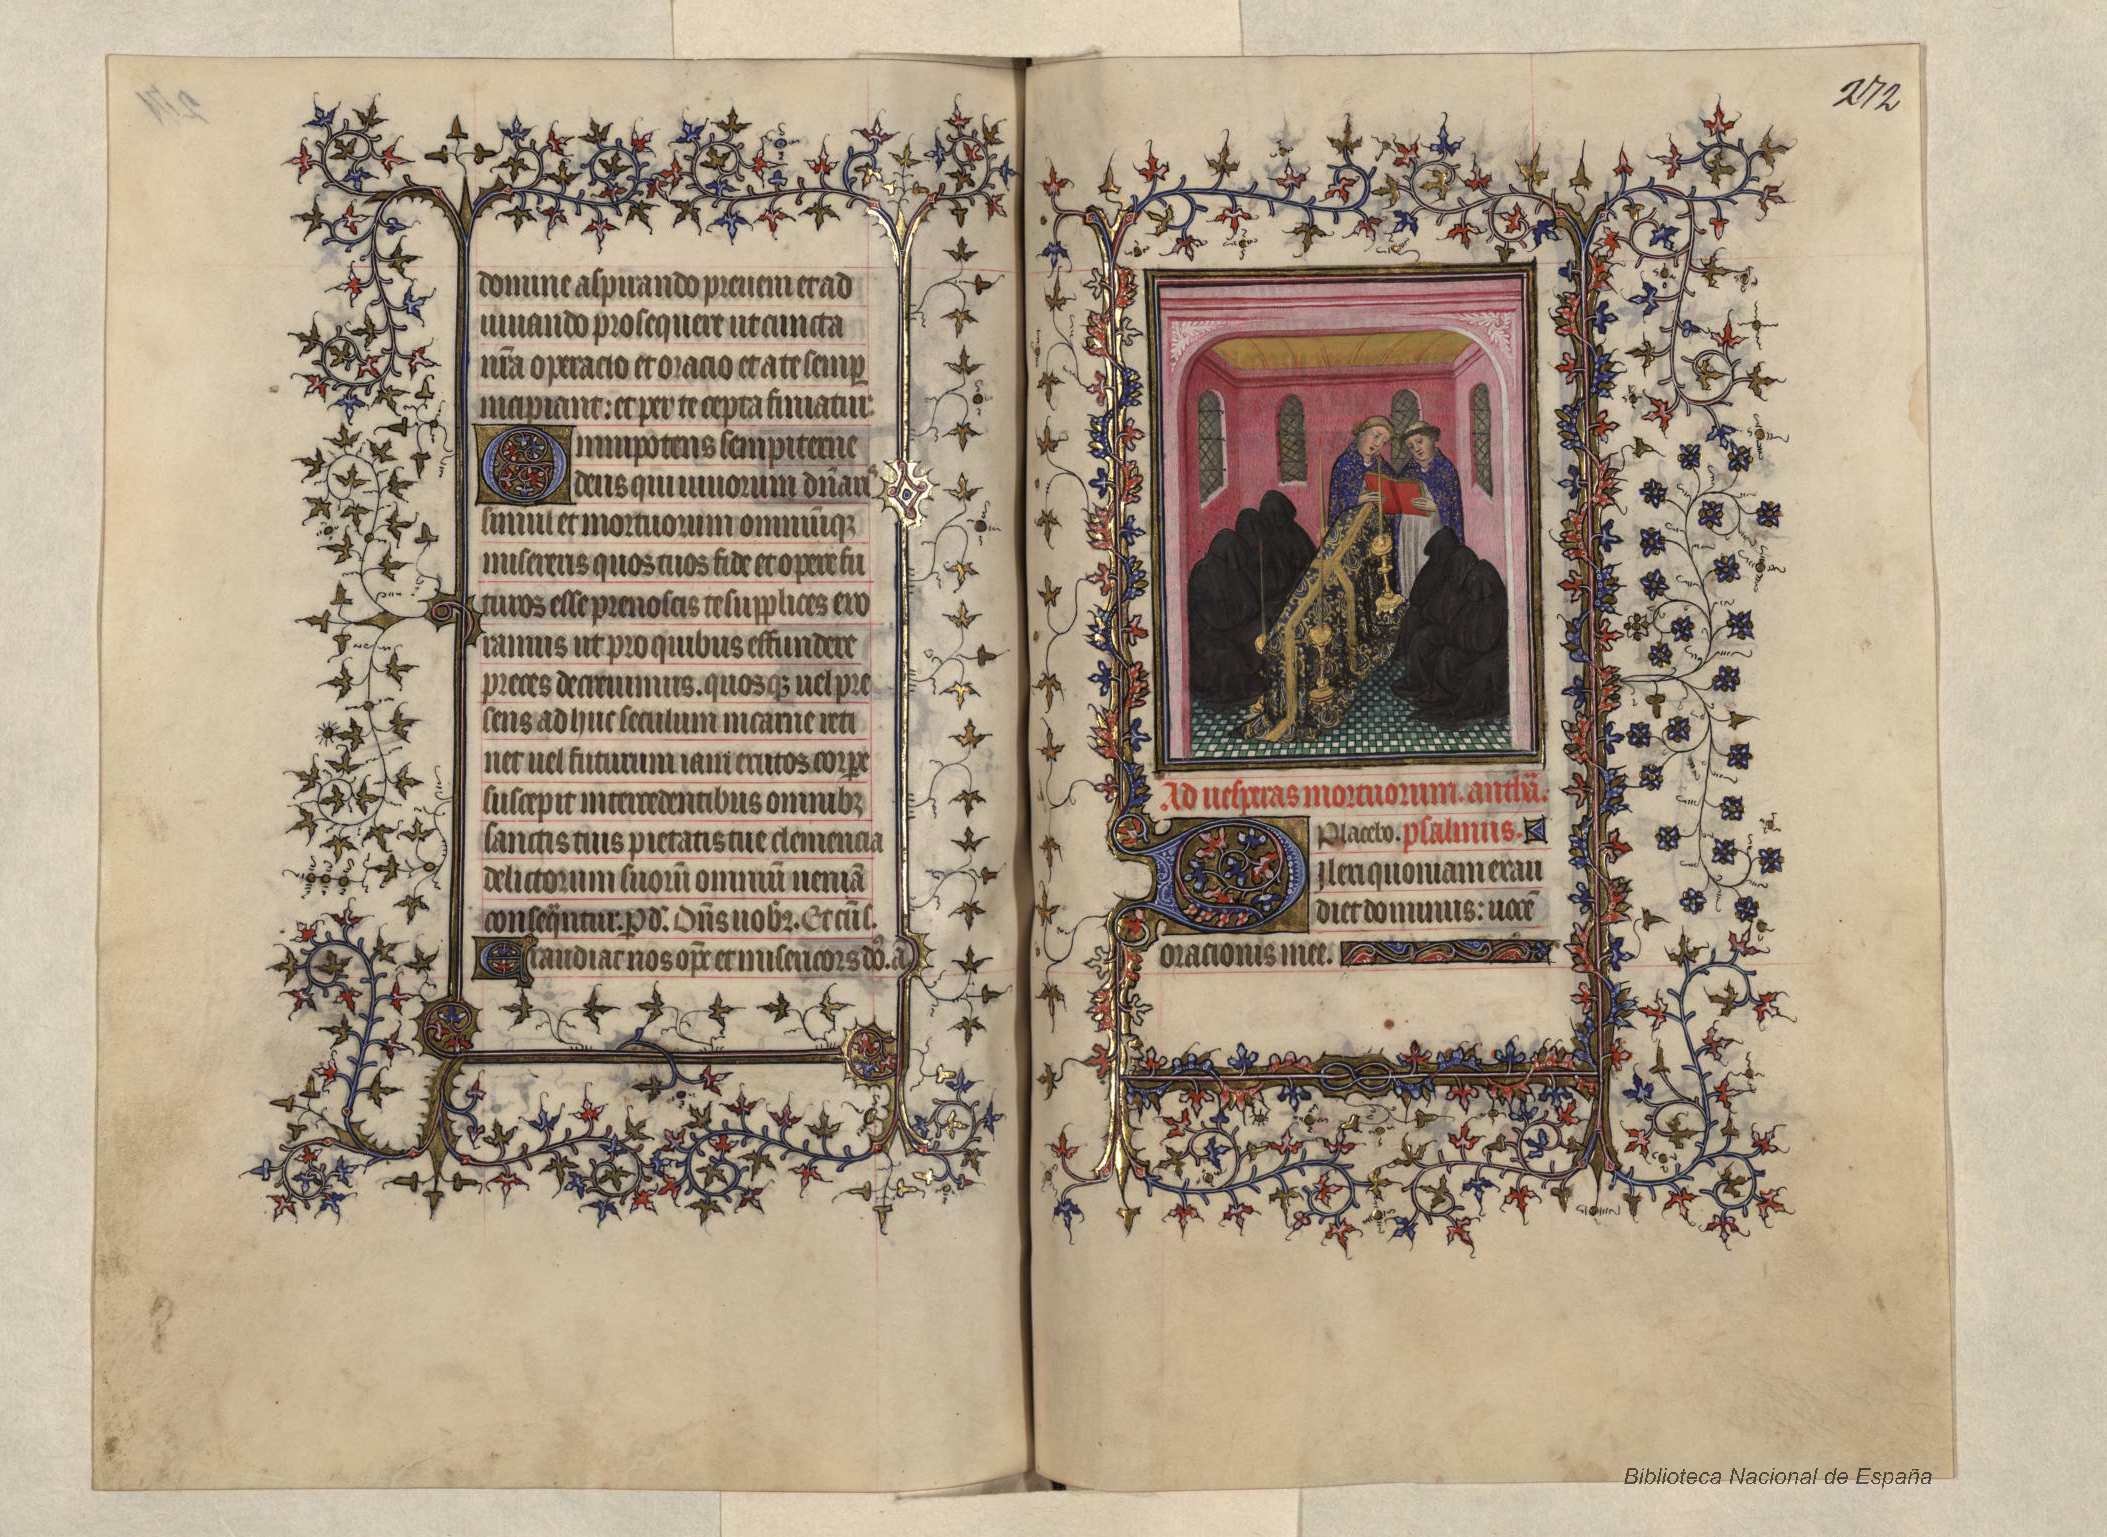 domine aspirando preueni et ad
iuuando prosequere ut cuncta
nr̄a operacio et oracio et a te semꝑ
incipiant: et per te cepta finiatur.
Omnipotens sempiterne
deus qui uiuorum dn̄aris
simul et mortuorum omniūqꝫ
misereris quos tuos fide et opere fu
turos esse prenoscis te supplices exo
ramus ut pro quibus effundere
preces decreuimus. quosqꝫ uel pre
sens adhuc seculum in carne reti
net uel futurum iam exutos corꝑe
suscepit intercedentibus omnibꝫ
sanctis tuis pietatis tue clemencia
delictorum suorū omniū ueniā
conseqͣntur. ꝑ d. Dn̄s uob. Et cū s.
Exaudiat nos op̄s et misericors do. ā
272
Ad uesperas mortuorum. anthā.
Placebo. psalmus.
Dilexi quoniam exau
diet dominus: uocē
oracionis mee.
Biblioteca Nacional de España